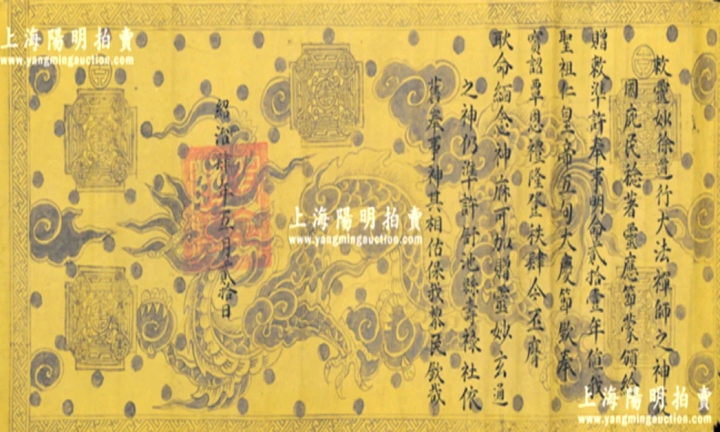 敕靈妙徐道行大法禪師之神
國庇民稔著靈應節蒙頒給
贈敕準許奉事明命貳拾壹年值我
聖祖仁皇帝五旬大慶節欽奉
寶詔覃恩禮隆登秩肆今丕膺
耿命緬念神庥可加贈靈妙玄通
之神仍準許池縣壽祿社依
舊奉事神其相佑保我黎民欽哉
紹治年五月貳拾日
上海陽明拍賣
www.yangmingauction.com
上海陽明拍賣
www.yangmingauction.com
上海陽明拍賣
www.yangmingauction.com
上海陽明拍賣
www.yangmingauction.com